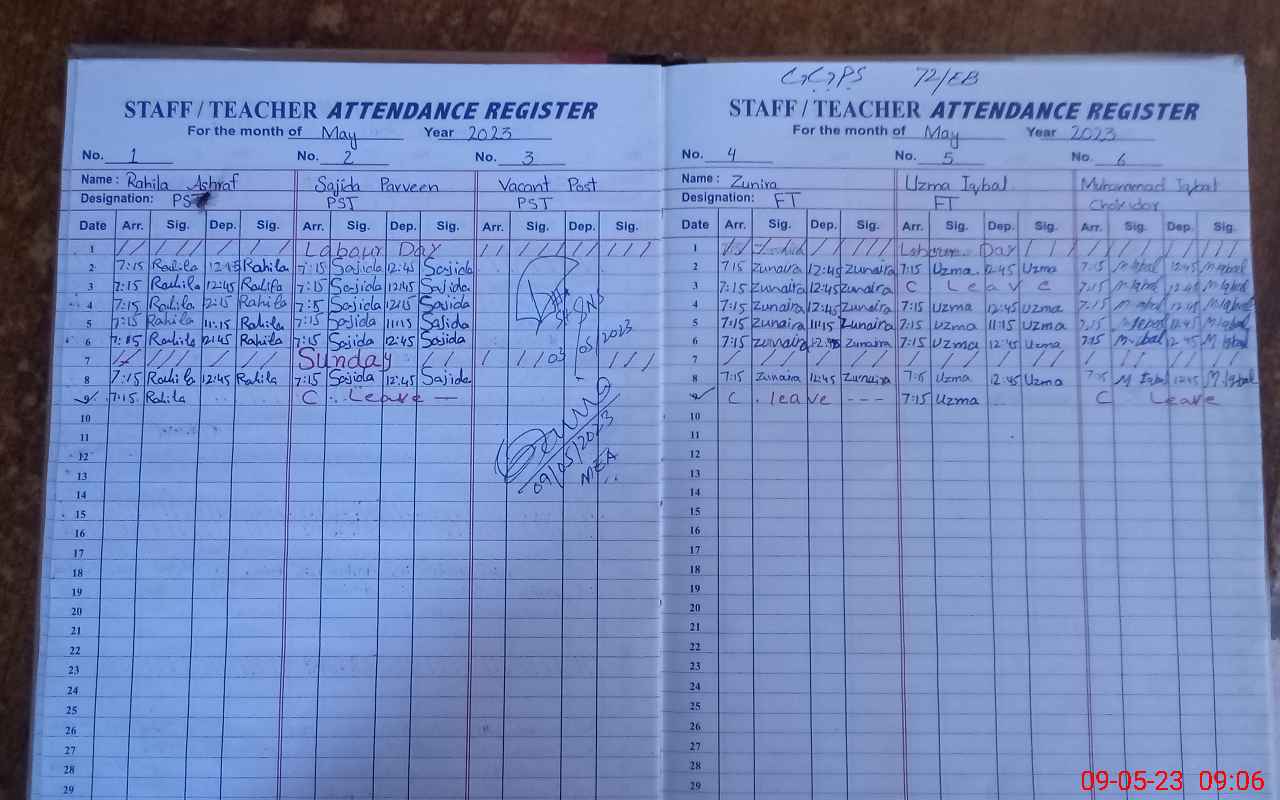 G.G.P.S 72/EB
STAFF / TEACHER ATTENDANCE REGISTER
For the month of May Year 2023
No. 1 No. 2 No. 3
Name : Rahila Ashraf Sajida Parveen Vacant Post
Designation: PST PST PST
Date Arr. Sig. Dep. Sig. Arr. Sig. Dep. Sig. Arr. Sig. Dep. Sig.
1 Labour Day
2 7:15 Rahila 12:45 Rahila 7:15 Sajida 12:45 Sajida
3 7:15 Rahila 12:45 Rahila 7:15 Sajida 12:45 Sajida
4 7:15 Rahila 12:15 Rahila 7:15 Sajida 12:15 Sajida
5 7:15 Rahila 11:15 Rahila 7:15 Sajida 11:15 Sajida
6 7:15 Rahila 12:45 Rahila 7:15 Sajida 12:45 Sajida
7 Sunday
8 7:15 Rahila 12:45 Rahila 7:15 Sajida 12:45 Sajida
9 7:15 Rahila C Leave
10
11
12
13
14
15
16
17
18
19
20
21
22
23
24
25
26
27
28
29
03/05/2023
09/05/2023
MEA
STAFF / TEACHER ATTENDANCE REGISTER
For the month of May Year 2023
No. 4 No. 5 No. 6
Name : Zunira Uzma Iqbal Muhammad Iqbal
Designation: FT FT Chokidar
Date Arr. Sig. Dep. Sig. Arr. Sig. Dep. Sig. Arr. Sig. Dep. Sig.
1 Labour Day
2 7:15 Zunaira 12:45 Zunaira 7:15 Uzma 12:45 Uzma 7:15 M Iqbal 12:45 M Iqbal
3 7:15 Zunaira 12:45 Zunaira C Leave 7:15 M Iqbal 12:45 M Iqbal
4 7:15 Zunaira 12:45 Zunaira 7:15 Uzma 12:45 Uzma 7:15 M Iqbal 12:45 M Iqbal
5 7:15 Zunaira 11:15 Zunaira 7:15 Uzma 11:15 Uzma 7:15 12:45 M Iqbal
6 7:15 Zunaira 12:45 Zunaira 7:15 Uzma 12:45 Uzma 7:15 M Iqbal 12:45 M Iqbal
7
8 7:15 Zunaira 12:45 Zunaira 7:15 Uzma 12:45 Uzma 7:15 M Iqbal 12:45 M Iqbal
9 C leave --- 7:15 Uzma C Leave
10
11
12
13
14
15
16
17
18
19
20
21
22
23
24
25
26
27
28
29
09-05-23 09:06